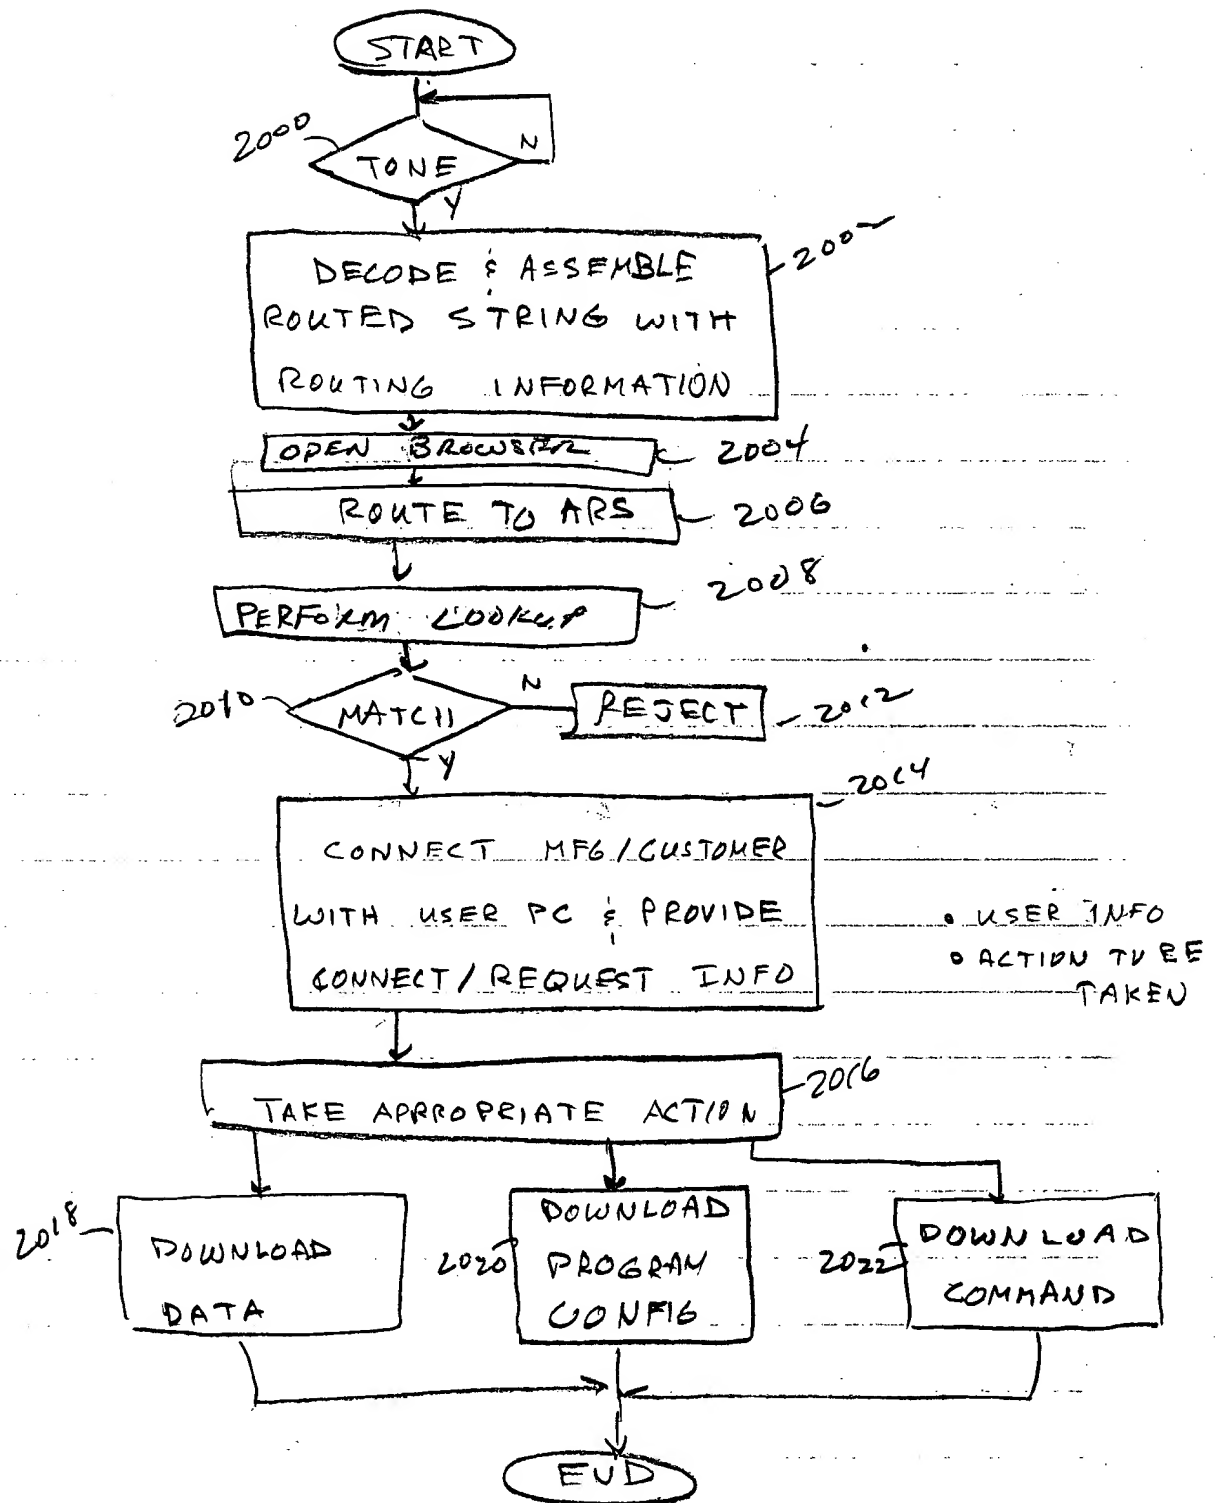 START
2000
N
TONE
Y
2002
DECODE & ASSEMBLE
ROUTED STRING WITH
ROUTING INFORMATION
OPEN BROWSER
2004
ROUTE TO ARS
2006
2008
PERFORM LOOKUP
2010
MATCH
N
REJECT
2012
Y
2014
CONNECT MFG/CUSTOMER
WITH USER PC & PROVIDE
CONNECT/REQUEST INFO
• USER INFO
• ACTION TO BE
TAKEN
2016
TAKE APPROPRIATE ACTION
2018
DOWNLOAD
DATA
2020
DOWNLOAD
PROGRAM
CONFIG
2022
DOWNLOAD
COMMAND
END